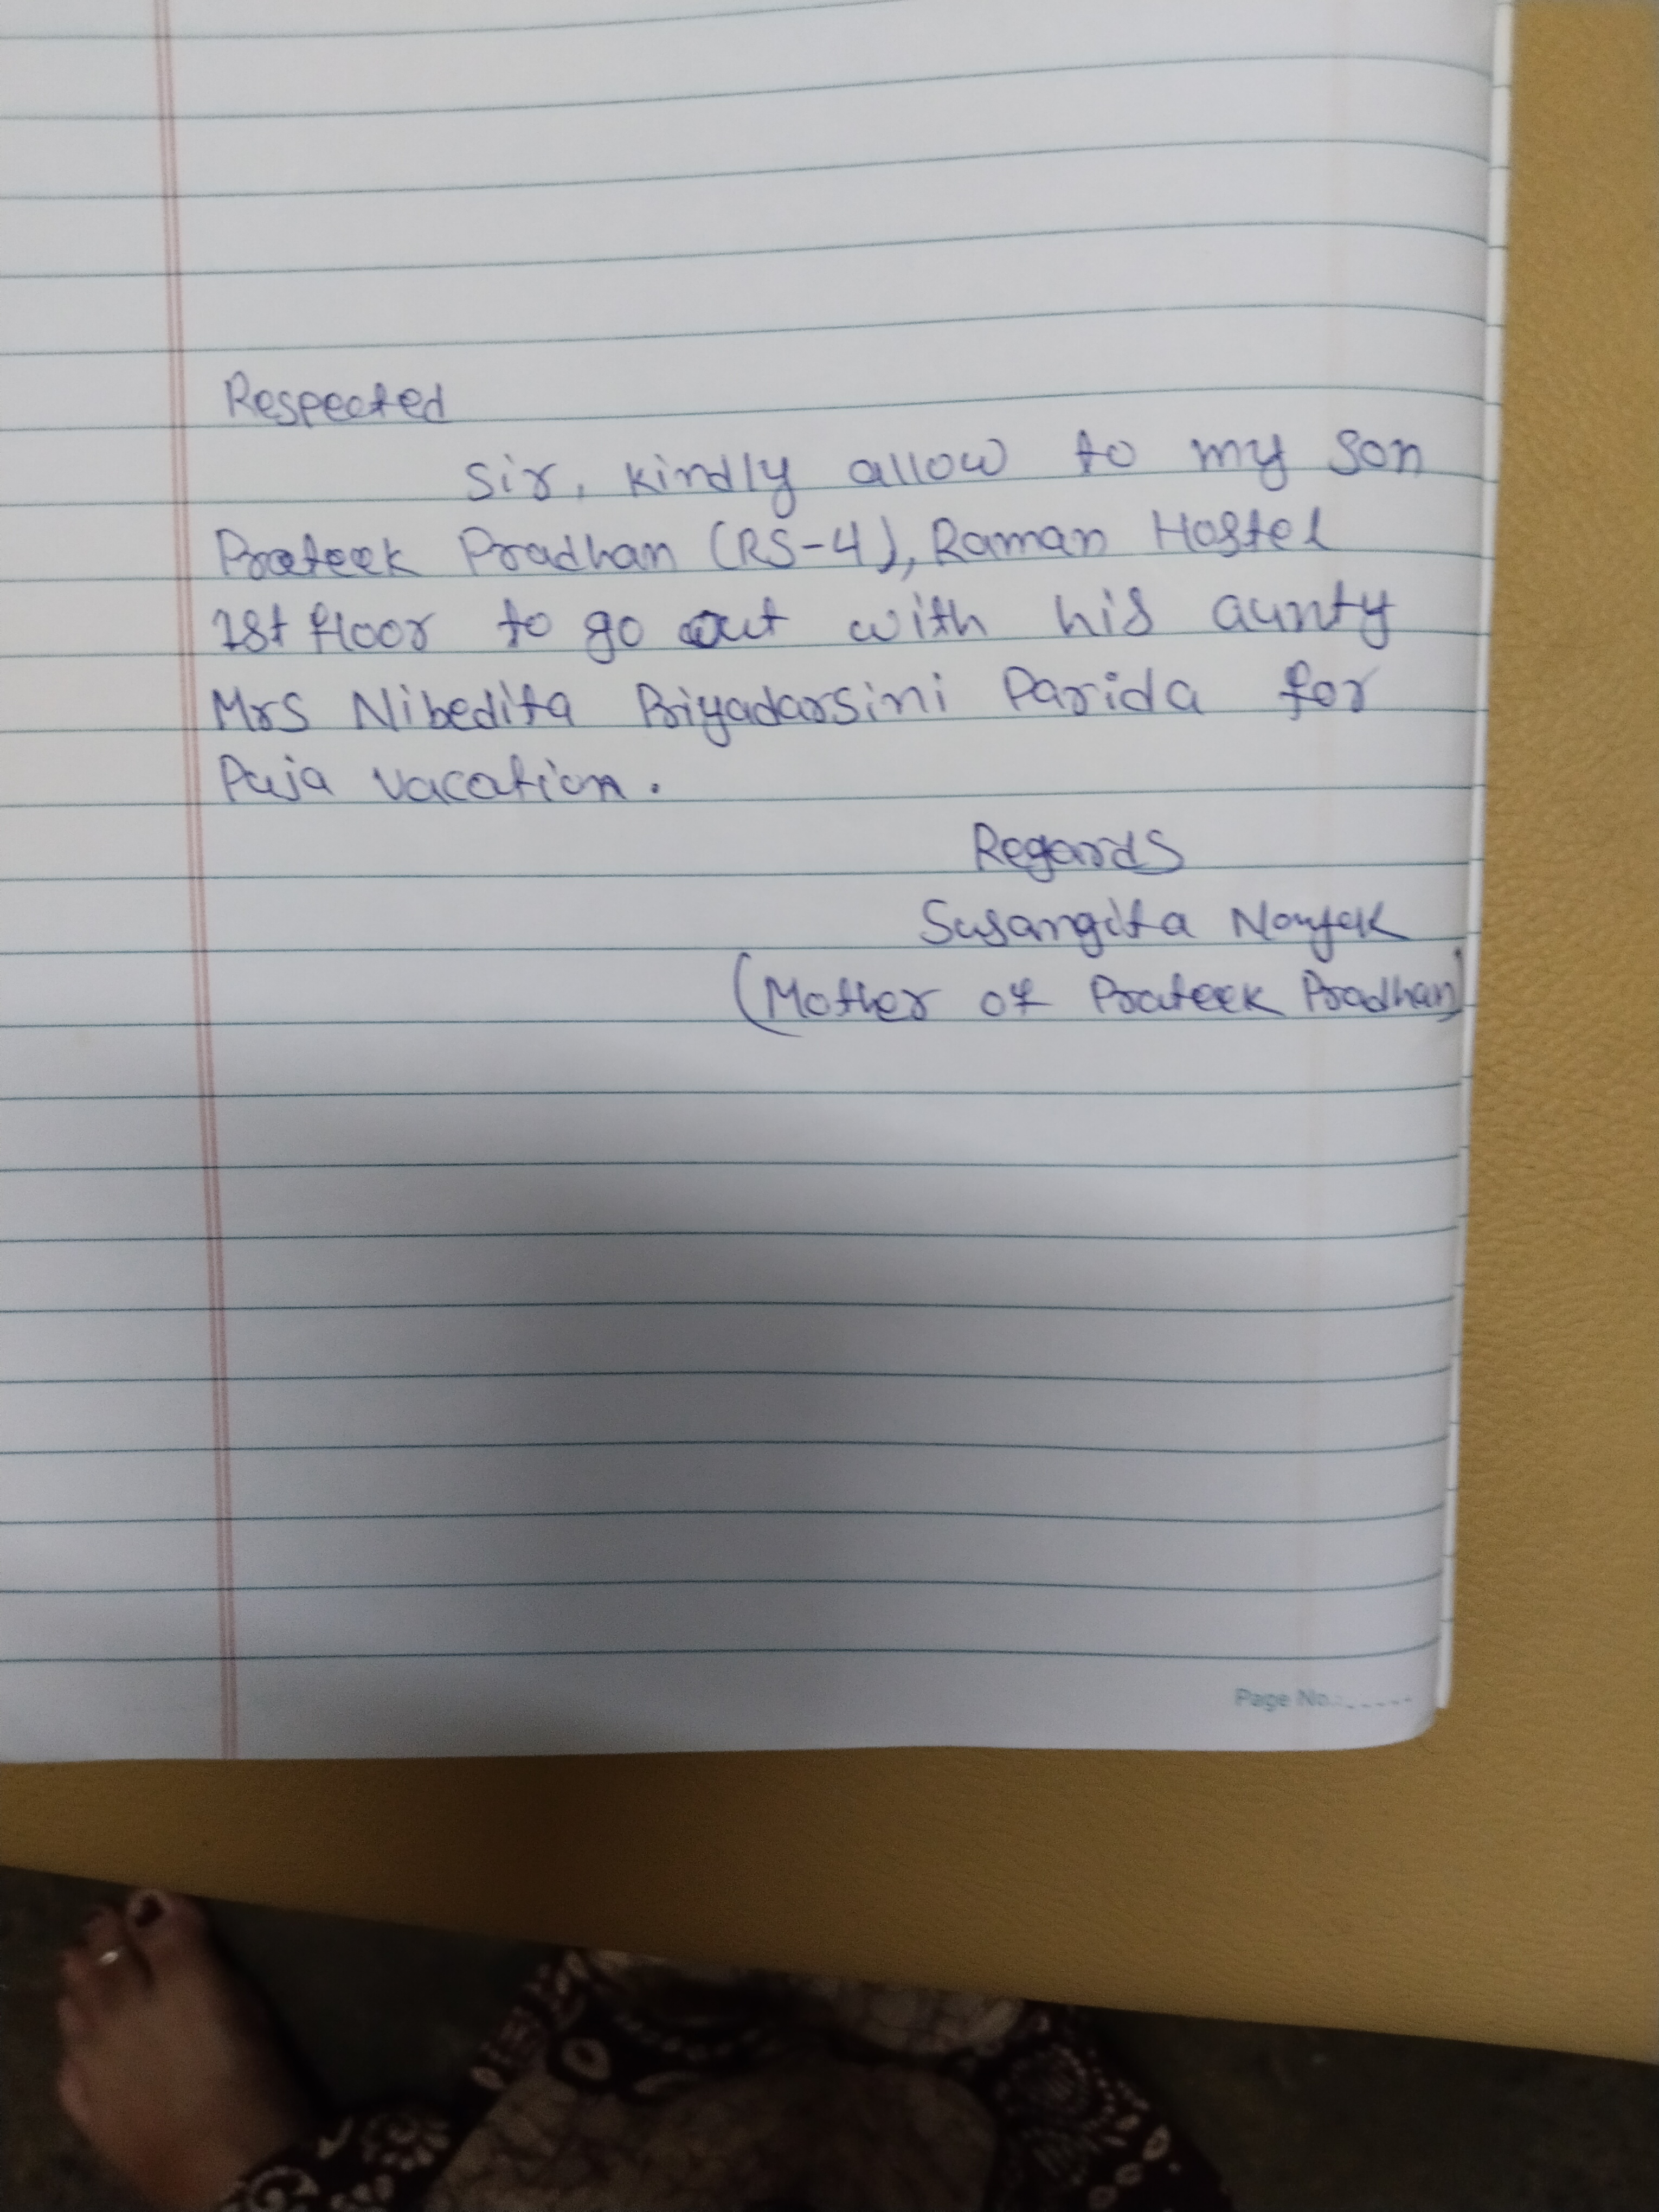 Respected
Sir, kindly allow to my son
Prateek Pradhan (RS-4), Raman Hostel
1st floor to go out with his aunty
Mrs Nibedita Priyadarsini Parida for
Puja vacation.
Regards
Susangita Nayak
(Mother of Prateek Pradhan)
Page No.: